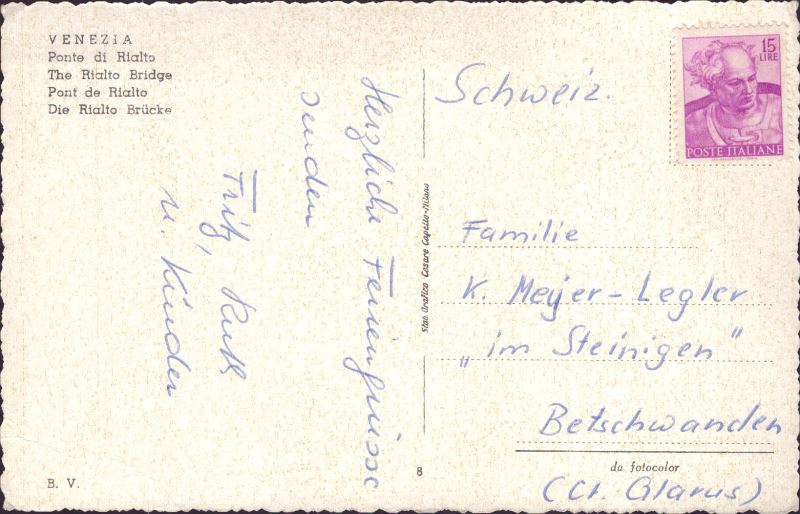 VENEZIA
Ponte di Rialto
The Rialto Bridge
Pont de Rialto
Die Rialto Brücke
Herzliche Feriengrüsse
senden
Fritz, Ruth
u. Kinder
B. V.
Stab. Grafico Cesare Capello-Milano
8
Schweiz.
15
LIRE
POSTE ITALIANE
Familie
K. Meyer-Legler
„im Steinigen"
Betschwanden
da fotocolor
(Ct. Glarus)